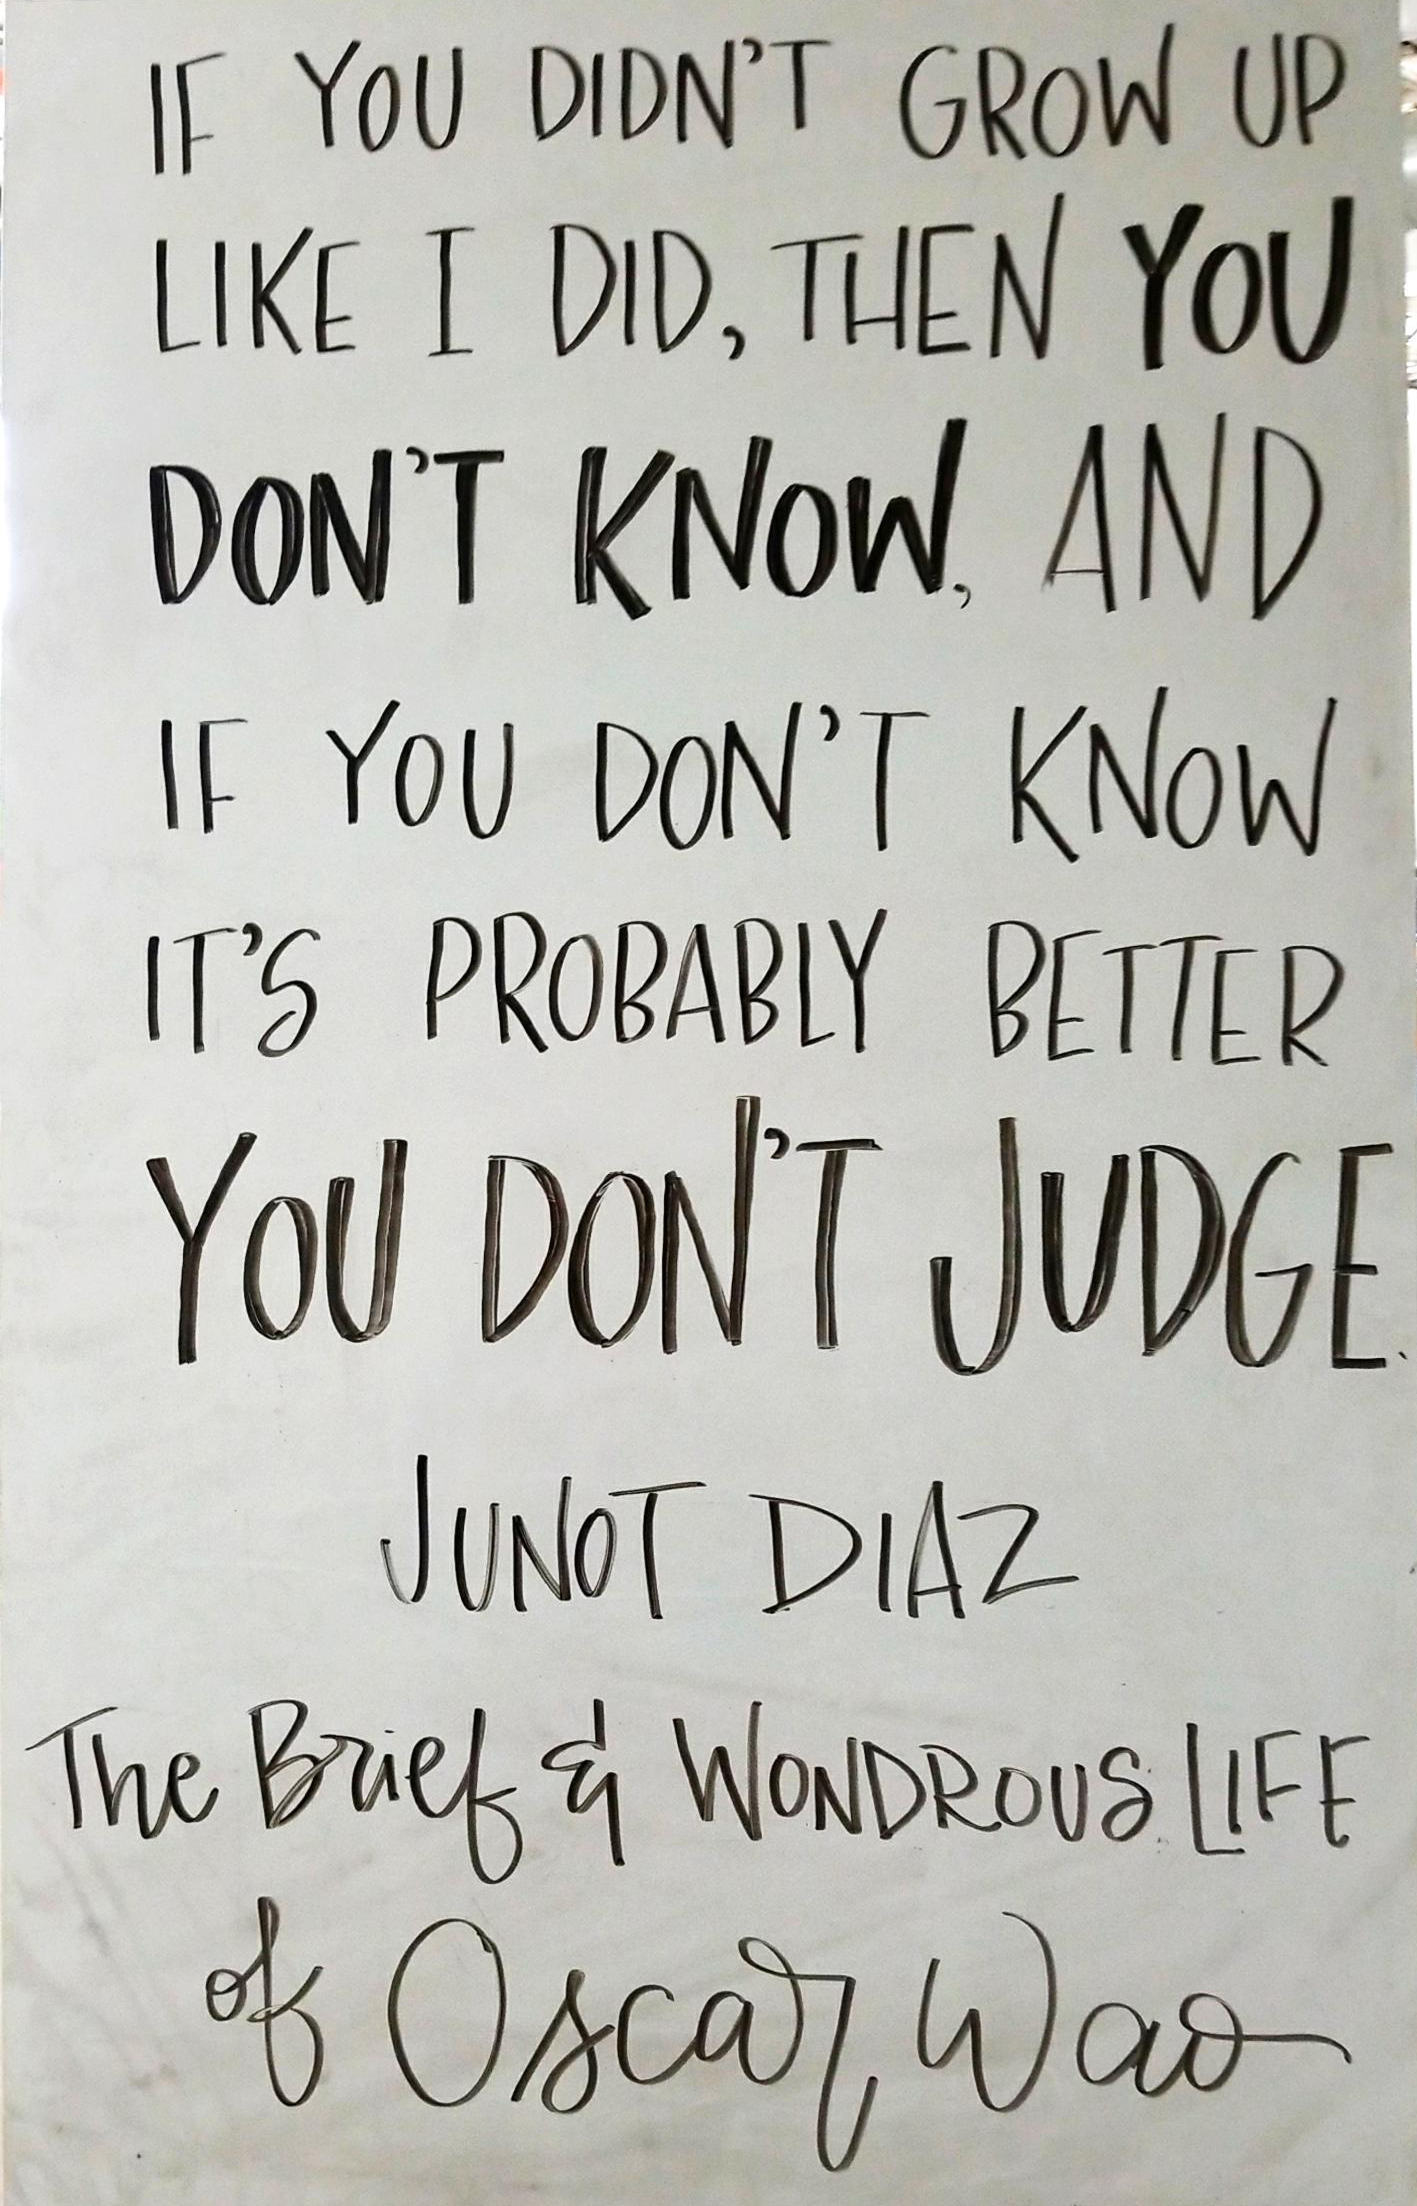 IF YOU DIDN'T GROW UP
LIKE I DID, THEN YOU
DON'T KNOW, AND
IF YOU DON'T KNOW
IT'S PROBABLY BETTER
YOU DON'T JUDGE.
JUNOT DIAZ
The Brief & WONDROUS LIFE
of Oscar Wao